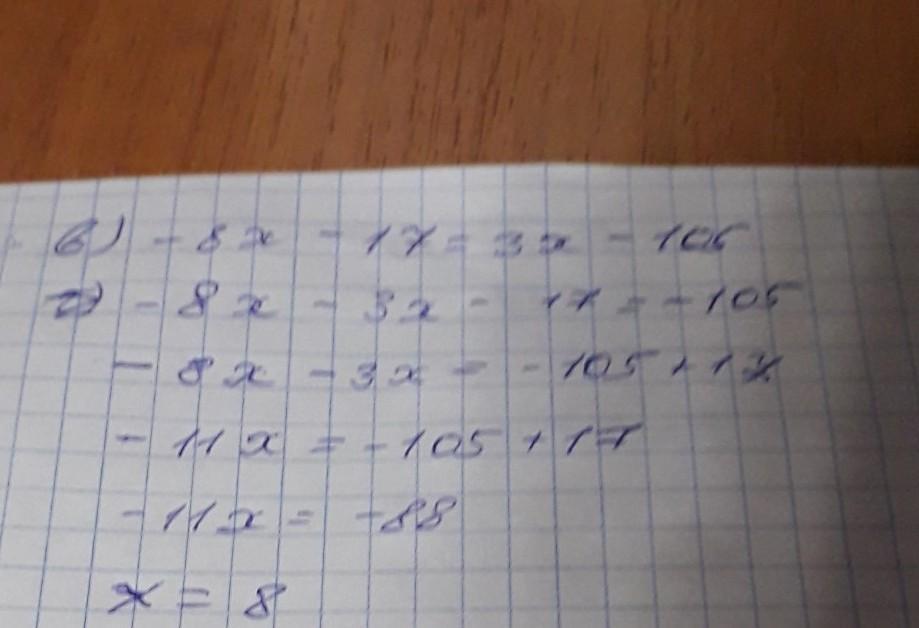 в) - 8x - 17 = 3x - 105
- 8x - 3x - 17 = -105
- 8x - 3x = -105 + 17
- 11x = -105 + 17
- 11x = -88
x = 8